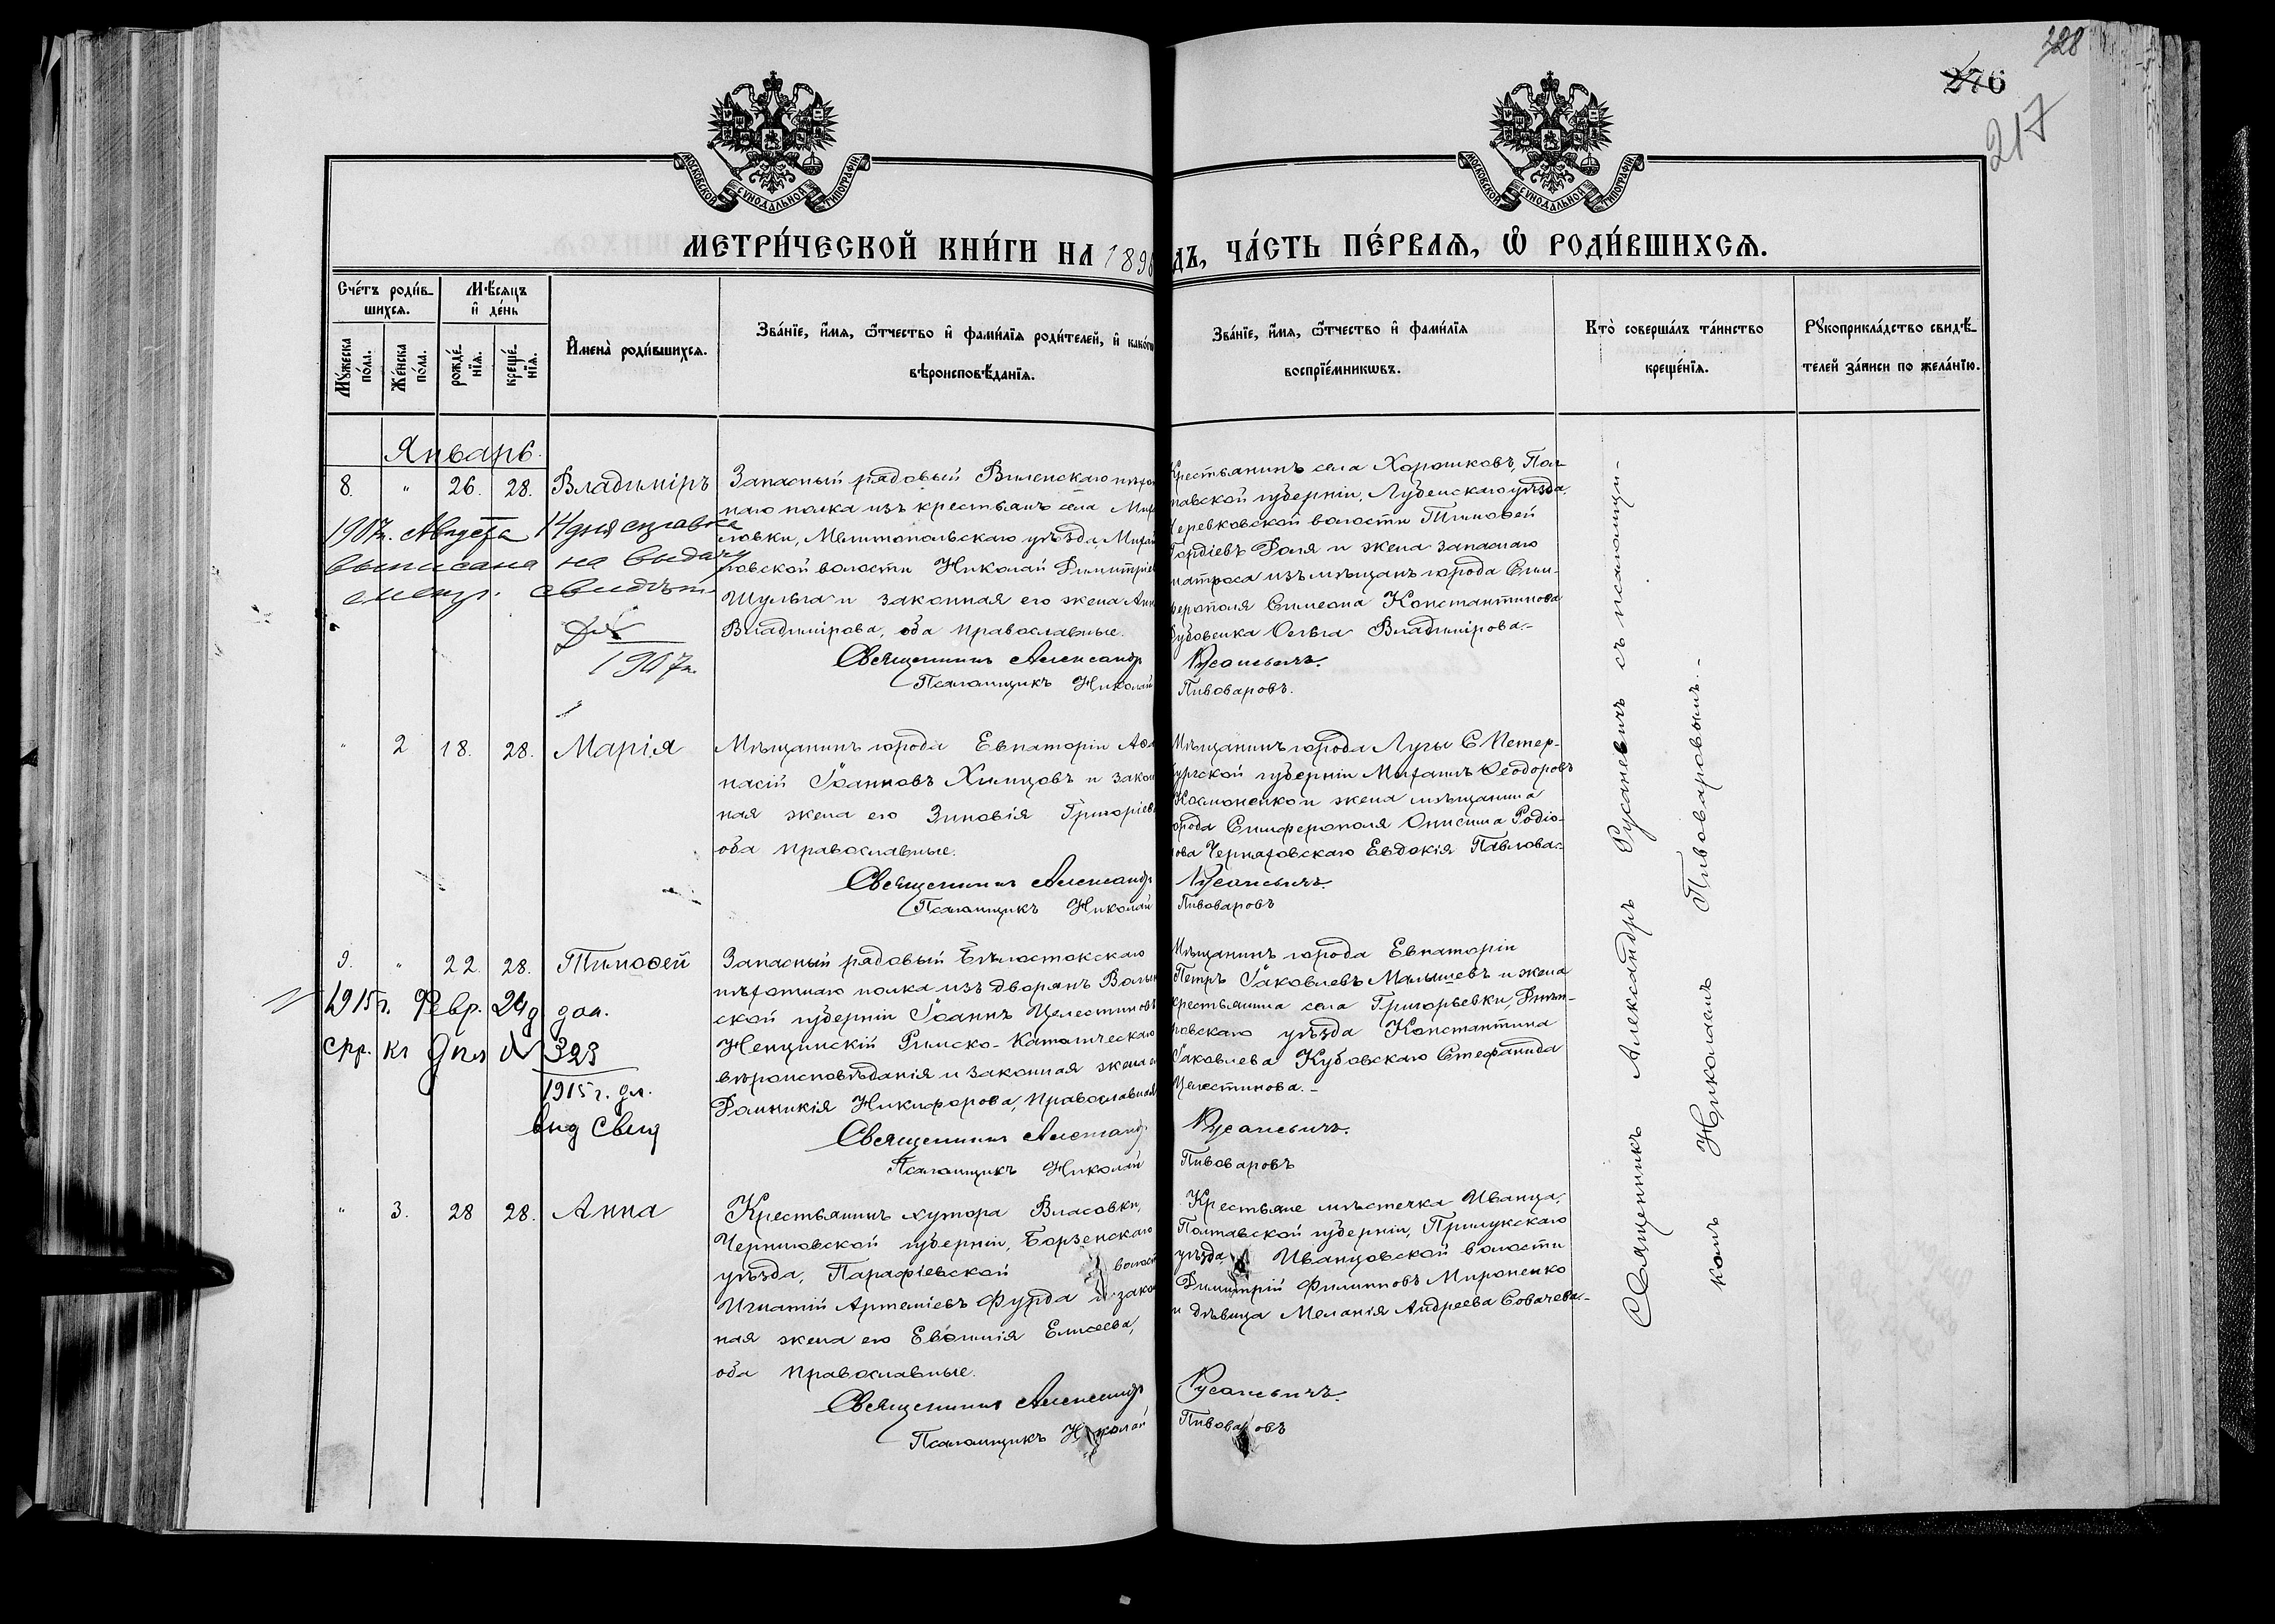 228
276
217
МОСКОВСКОЙ СѴНОДАЛЬНОЙ ТИПОГРАФІИ
МОСКОВСКОЙ СѴНОДАЛЬНОЙ ТИПОГРАФІИ
МЕТРИ́ЧЕСКОЙ КНИ́ГИ НА 189
ДЪ, ЧА́СТЬ ПЕ́РВАѦ, Ѽ РОДИ́ВШИХСѦ.
Сче́тъ роди́в-
шихсѧ.
Мѣ́сѧцъ
и҆ де́нь
Мꙋ́жеска по́ла.
Же́нска по́ла.
рожде́-нїѧ.
креще́-нїѧ.
И҆мена̀ роди́вшихсѧ.
Зва́нїе, и҆́мѧ, ѻ҆́тчество и҆ фами́лїѧ роди́телей, и҆ како́гѡ
вѣроисповѣ́данїѧ.
Зва́нїе, и҆́мѧ, ѻ҆́тчество и҆ фами́лїѧ
воспрїе́мникѡвъ.
Кто̀ соверша́лъ та́инство
креще́нїѧ.
Рꙋкоприкла́дство свидѣ́-
телей за́писи по жела́нїю.
Январь.
8. " 26. 28. Владиміръ
Запасный рядовый Виленскаго пѣхот
наго полка изъ крестьянъ села Миха
ловки, Мелитопольскаго уѣзда, Михай
ловской волости Николай Димитріев
Шульга и законная его жена Анн
Владимірова, оба православные.
Священникъ Александр
Псаломщикъ Николай
Крестьянинъ села Хорошковъ, Пол-
тавской губерніи, Лубенскаго уѣзда,
Черевковской волости Тимофей
Гордіевъ Доля и жена запаснаго
матроса изъ мѣщанъ города Сим-
ферополя Симеона Константинова
Дубовенка Ольга Владимірова.-
Русаневичъ.
Пивоваровъ.
1907г. Августа 14 дня справка
выписана на выдачу
метр. свидѣт.
1907г.
" 2 18. 28. Марія
Мѣщанинъ города Евпаторіи Аѳа
насій Іоанновъ Химцовъ и закон
ная жена его Зиновія Григоріев
оба православные.
Священникъ Александр
Псаломщикъ Николай
Мѣщанинъ города Луги С Петер-
бургской губерніи Михаилъ Ѳеодоровъ
Космоненко и жена мѣщанина
города Симферополя Онисима Родіо-
нова Чернаховскаго Евдокія Павлова.-
Русаневичъ.
Пивоваровъ
9. " 22. 28. Тимоѳей
Запасный рядовый Бѣлостокскаго
пѣхотнаго полка изъ дворянъ Волын
ской губерніи Іоаннъ Целестиновъ
Ненцинскій Римско-Католическаго
вѣроисповѣданія и законная жена е
Домникія Никифорова, православная
Священникъ Александр
Псаломщикъ Николай
Мѣщанинъ города Евпаторіи
Петръ Іаковлевъ Малышевъ и жена
крестьянина села Григорьевки, Днѣп-
ровскаго уѣзда Константина
Іаковлева Кубовскаго Стефанида
Целестинова.-
Русаневичъ.
Пивоваровъ
1915г. Февр. 24 д
спр. къ № 323
1915г.
" 3. 28 28. Анна
Крестьянинъ хутора Власовки,
Черниговской губерніи, Борзенскаго
уѣзда, Парафіевской волост
Игнатій Артеміевъ Фурда и закон
ная жена его Евѳимія Елисеева,
оба православные.
Священникъ Александр
Псаломщикъ Николай
Крестьяне мѣстечка Иваница,
Полтавской губерніи, Прилукскаго
уѣзда, Иваницовской волости
Димитрій Филипповъ Мироненко
и дѣвица Меланія Андреева Собачева.-
Русаневичъ.
Пивоваровъ
Священникъ Александръ Русаневичъ съ псаломщи-
комъ Николаемъ Пивоваровымъ.-